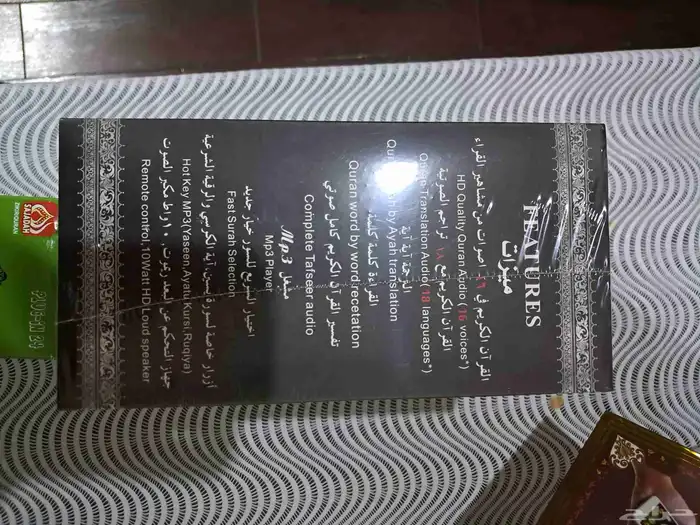 FEATURES
مميزات
القرآن الكريم في ١٦ اصوات من مشاهير القراء
HD Quality Quran Audio (16 voices*)
القرآن الكريم مع ١٨ تراجم الصوتية
Quran Translation Audio (18 languages*)
الترجمة آية آية
by Ayah translation
القراءة كلمة كلمة
Quran word by word recetation
تفسير القرآن الكريم كامل صوتي
Complete Tafseer audio
مشغل Mp3
Mp3 Player
اختيار السريع للسور خيار جديد
Fast Surah Selection
أزرار خاصة لسورة يسين، آية الكرسي والرقية الشرعية
Hot Key MP3(Yaseen,Ayatu Kursi,Ruqiya)
جهاز التحكم عن بعد ريموت, ١٠واط مكبر الصوت
Remote control,10Watt HD Loud speaker
SAJADAH